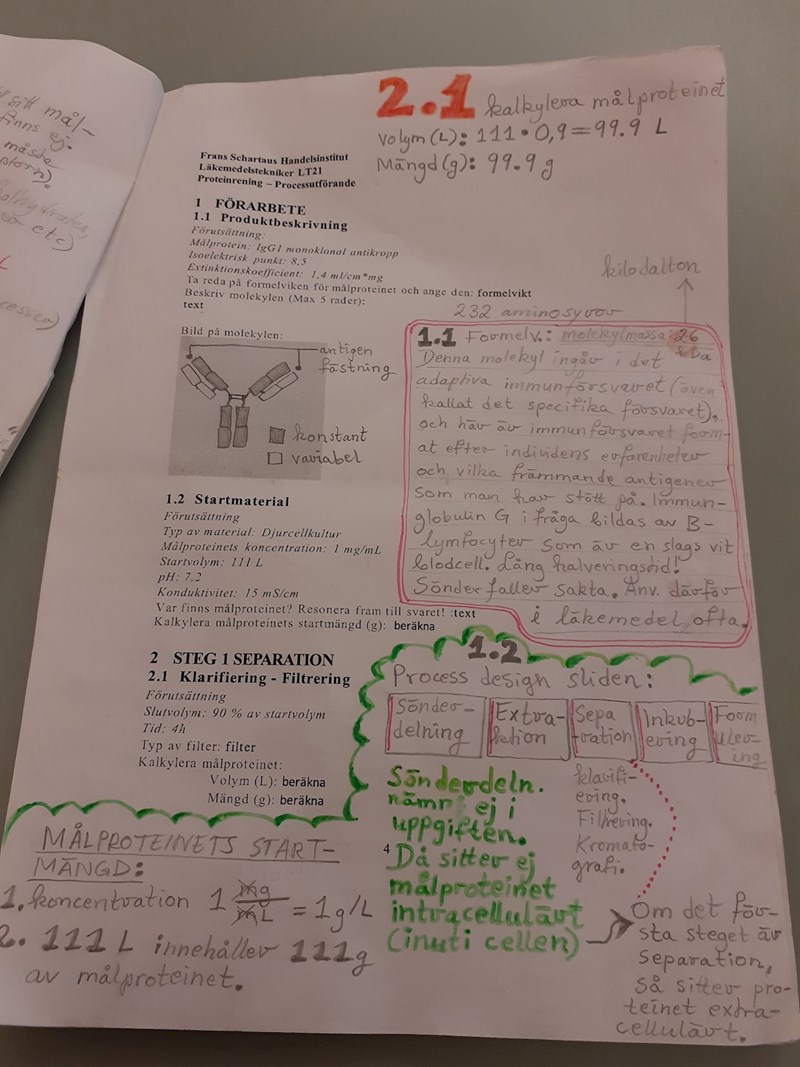 sitt mål-
finns ej.
måste
etc)
2.1 kalkylera målproteinet
Volym (L): 111 · 0,9 = 99.9 L
Mängd (g): 99.9 g
Frans Schartaus Handelsinstitut
Läkemedelstekniker LT21
Proteinrening – Processutförande
1 FÖRARBETE
1.1 Produktbeskrivning
Förutsättning:
Målprotein: IgG1 monoklonal antikropp
Isoelektrisk punkt: 8,5
Extinktionskoefficient: 1,4 ml/cm*mg
Ta reda på formelvikten för målproteinet och ange den: formelvikt
Beskriv molekylen (Max 5 rader):
text
kilodalton
232 aminosyror
Bild på molekylen:
antigen
fästning
konstant
variabel
1.1 Formelv.: molekylmassa: 26
kDa
Denna molekyl ingår i det
adaptiva immunförsvaret (även
kallat det specifika försvaret),
och här är immunförsvaret form-
at efter individens erfarenheter
och vilka främmande antigener
som man har stött på. Immun-
globulin G i fråga bildas av B-
lymfocyter som är en slags vit
blodcell. Lång halveringstid!
Sönderfaller sakta. Anv. därför
i läkemedel ofta.
1.2 Startmaterial
Förutsättning
Typ av material: Djurcellkultur
Målproteinets koncentration: 1 mg/mL
Startvolym: 111 L
pH: 7,2
Konduktivitet: 15 mS/cm
Var finns målproteinet? Resonera fram till svaret! :text
Kalkylera målproteinets startmängd (g): beräkna
2 STEG 1 SEPARATION
2.1 Klarifiering - Filtrering
Förutsättning
Slutvolym: 90 % av startvolym
Tid: 4h
Typ av filter: filter
Kalkylera målproteinet:
Volym (L): beräkna
Mängd (g): beräkna
1.2
Process design sliden:
Sönder-
delning
Extra-
ktion
Sepa
ration
Inkub-
ering
Form
uler-
ing
Sönderdeln.
nämns ej i
uppgiften.
4
Då sitter ej
målproteinet
intracellulärt
(inuti cellen)
klarifi-
ering.
Filtrering.
Kromato-
grafi.
Om det för-
sta steget är
separation,
så sitter pro-
teinet extra-
cellulärt.
MÅLPROTEINETS START-
MÄNGD:
1. koncentration 1 mg/mL = 1 g/L
2. 111 L innehåller 111g
av målproteinet.